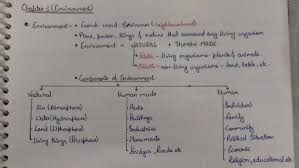 Chapter-1 (Environment)
• Environment - French word Environer (neighbourhood)
• Place, person, things & nature that surround any living organism
• Environment = NATURAL + HUMAN MADE
Biotic - living organisms - plants & animals
Abiotic - non-living organisms - land, table, etc
• Components of Environment
Natural Human made Human
Air (Atmosphere) Parks Individual
Water (Hydrosphere) Buildings Family
Land (Lithosphere) Industries Community
Living things (Biosphere) Monuments Political Situation
Bridges, Roads etc Economic
Religion, educational etc